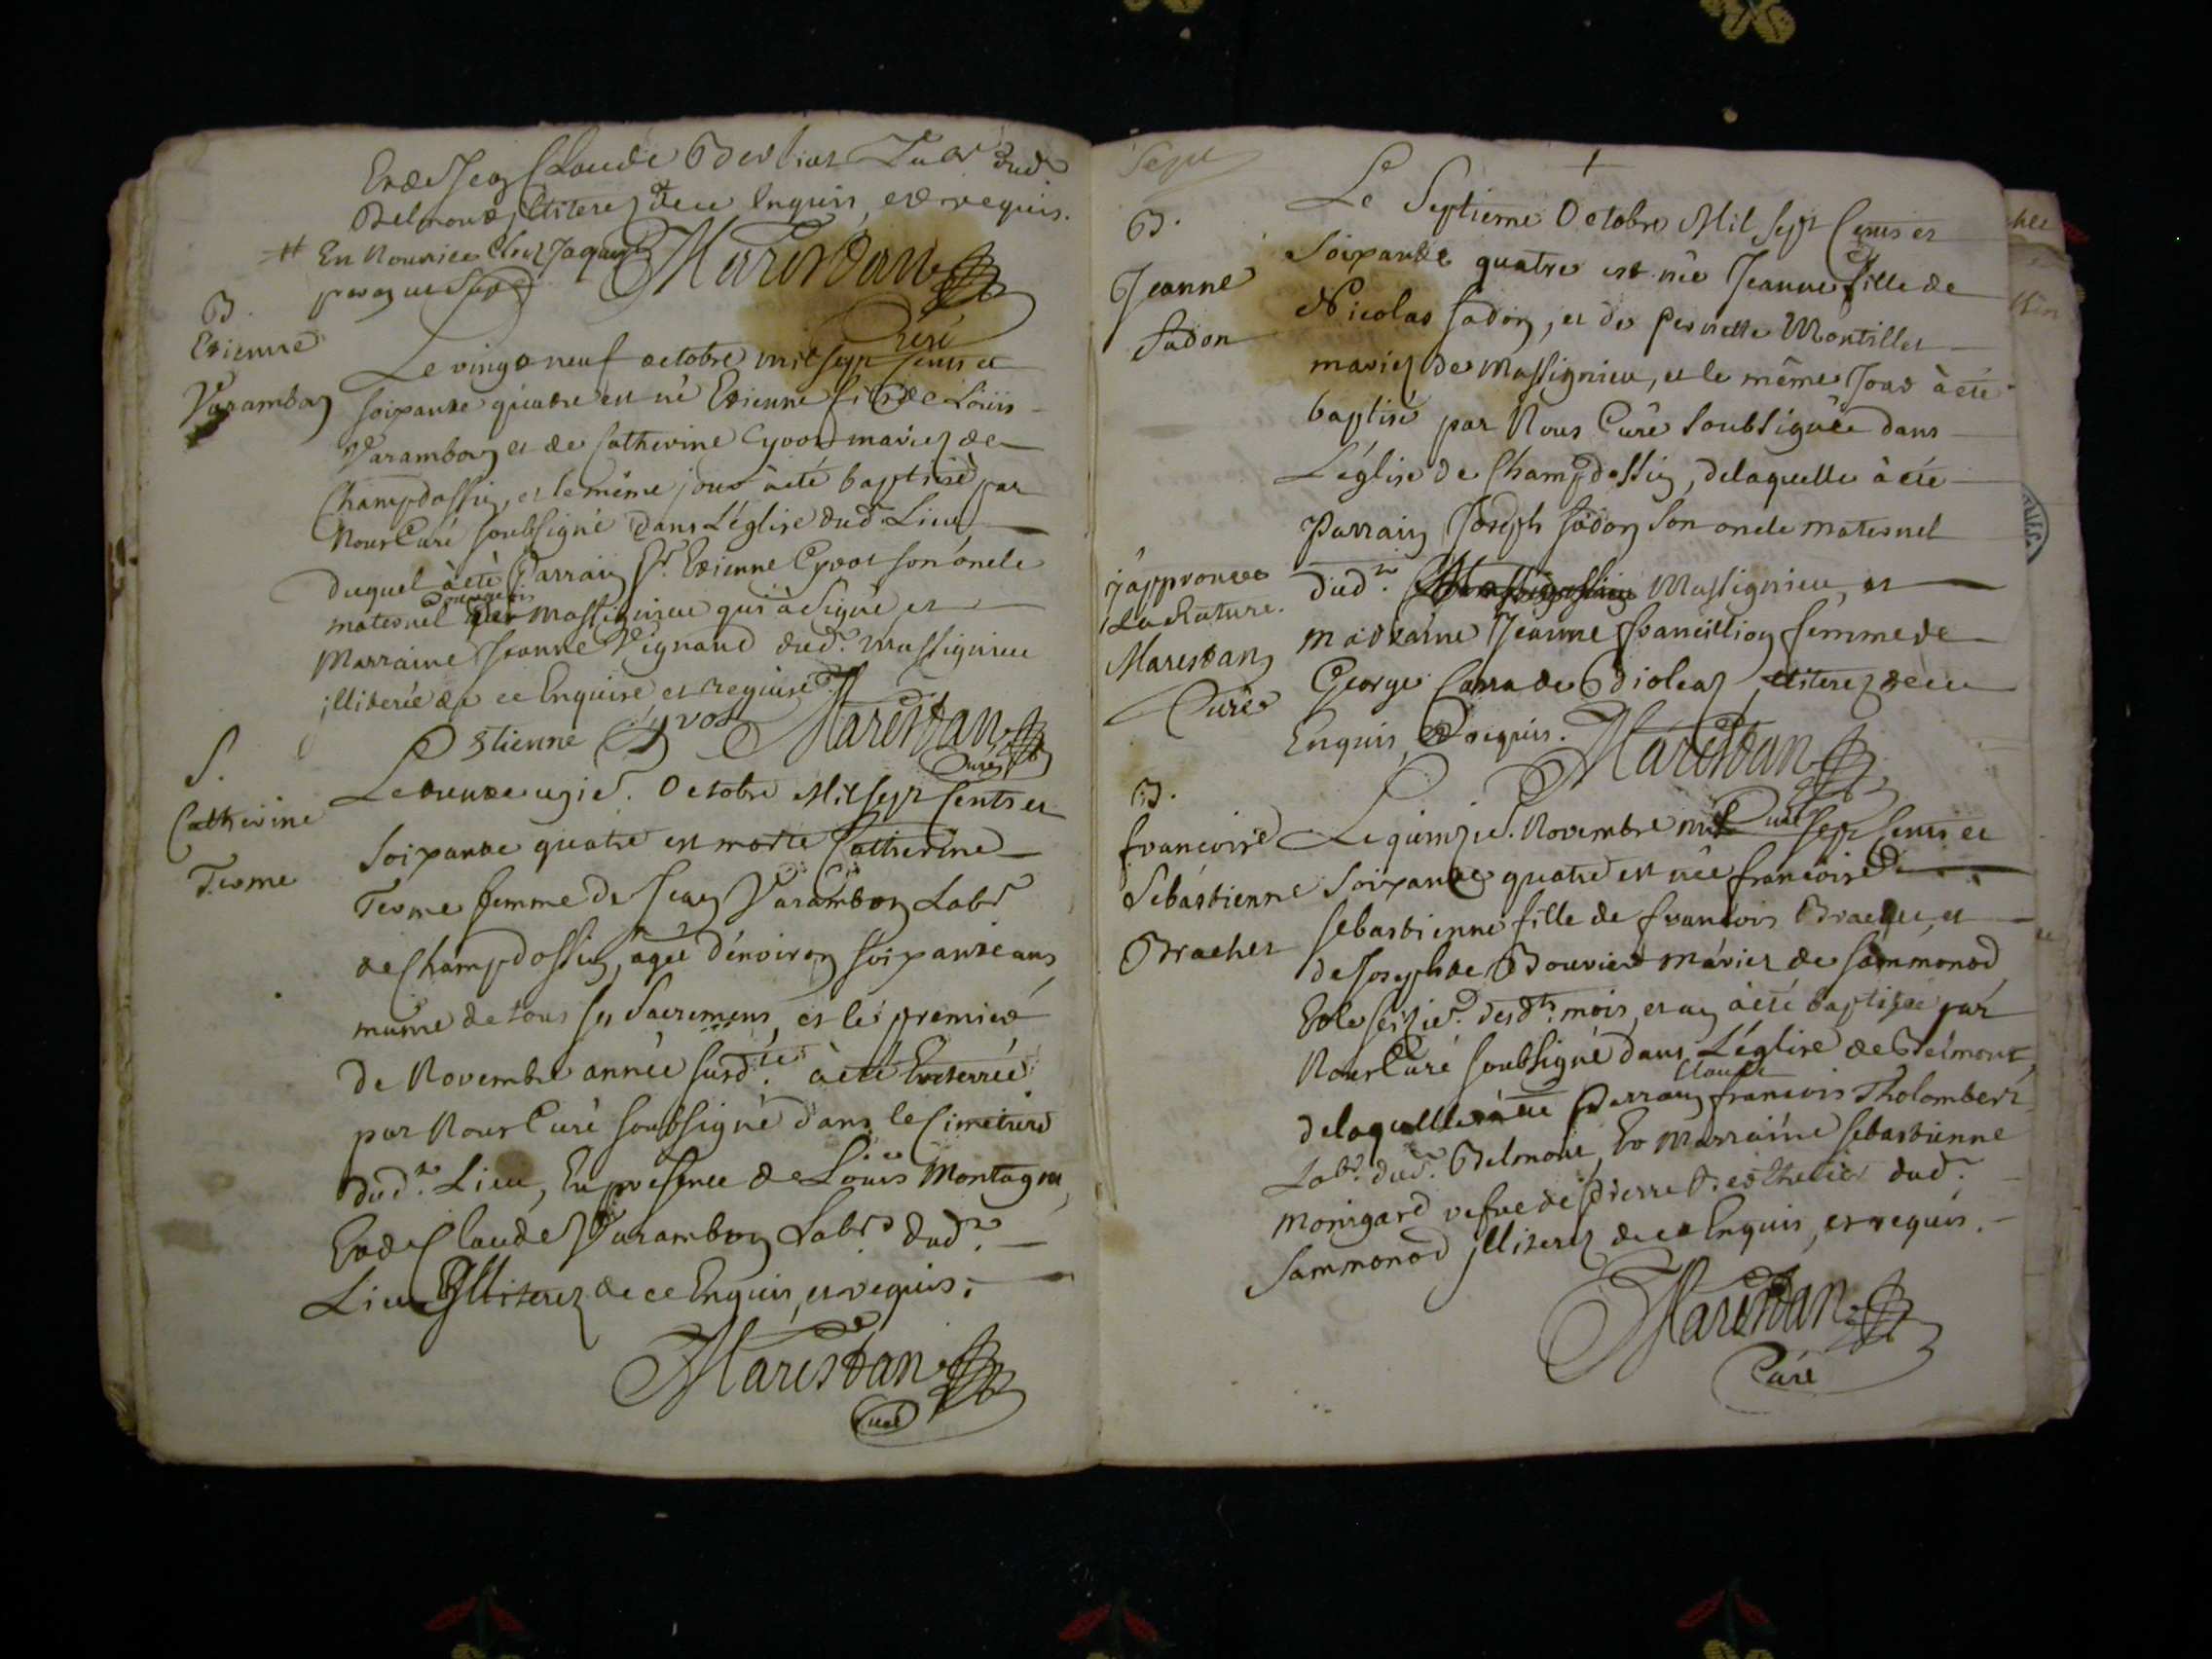 Et de Jean Claude Berlioz Labr dud
Belmont, illiterez de ce Enquis, et requis.
# En Nourrice Chez Jaques
Marestan
Curé
B.
Etienne
Varambon
Le vingt neuf octobre mil sept cents et
soixante quatre est né Etienne fils de Loüis
Varambon et de Catherine Cyvot mariez de
Champdossin, et le même jour à été baptisé par
Nous Curé soubsigné dans L'église dud. Lieu
duquel à été Parrain Sr. Etienne Cyvot son oncle
maternel Bourgeois de Massignieu qui à signé et
Marraine Jeanne Vignand dud. Massignieu
illiterée de ce Enquise et requise.
Estienne Cyvot Marestan
Curé
S.
Catherine
Terme
Le trente unie. Octobre Mil sept Cents et
Soixante quatre est morte Catherine
Terme femme de Jean Varambon Labr
de Champdossin, agée d'environ soixante ans
munie de tous ses Sacremens, et le premier
de Novembre année susd.te à été Enterrée
par Nous Curé soubsigné dans le Cimetiere
dud.t Lieu, En presence de Loüis Montagn
Et de Claude Varambon Labrs dud.t
Lieu Illiterez de ce Enquis, et requis.
Marestan
Curé
Sept
B.
Jeanne
Sadon
Le Septieme Octobre Mil Sept Cents et
Soixante quatre est née Jeanne fille de
Nicolas Sadon, et de Pernette Montillet
mariez de Massignieu, et le même Jour à été
baptisé par Nous Curé Soubsignée dans
L'église de Champdossin, delaquelle à été
Parrain Joseph Sadon Son oncle maternel
dud.t Massignieu, et
j'approuve
la Rature.
Marestan
Curé
Madraine Jeanne Francillion femme de
George Carra de illiterez de ce
Enquis, Et requis.
Marestan
Curé
B.
francoise
Sebastienne
Brachet
Le quinzie. Novembre mil sept Cents et
Soixante quatre est née francoise
Sebastienne fille de francois Brachet, et
de Josephte Bouvier mariez de Sammonod
Et le seizie. desd.ts mois, et an à été baptisée par
Nous Curé soubsigné dans L'église de Belmont,
delaquelle à été Parrain Claude francois Tholombert
Labr. dud.t Belmont, Et Marraine Sebastienne
Monigard vefve de Pierre Berthelier dud.t
Sammonod illiterez de ce Enquis, et requis.
Marestan
Curé